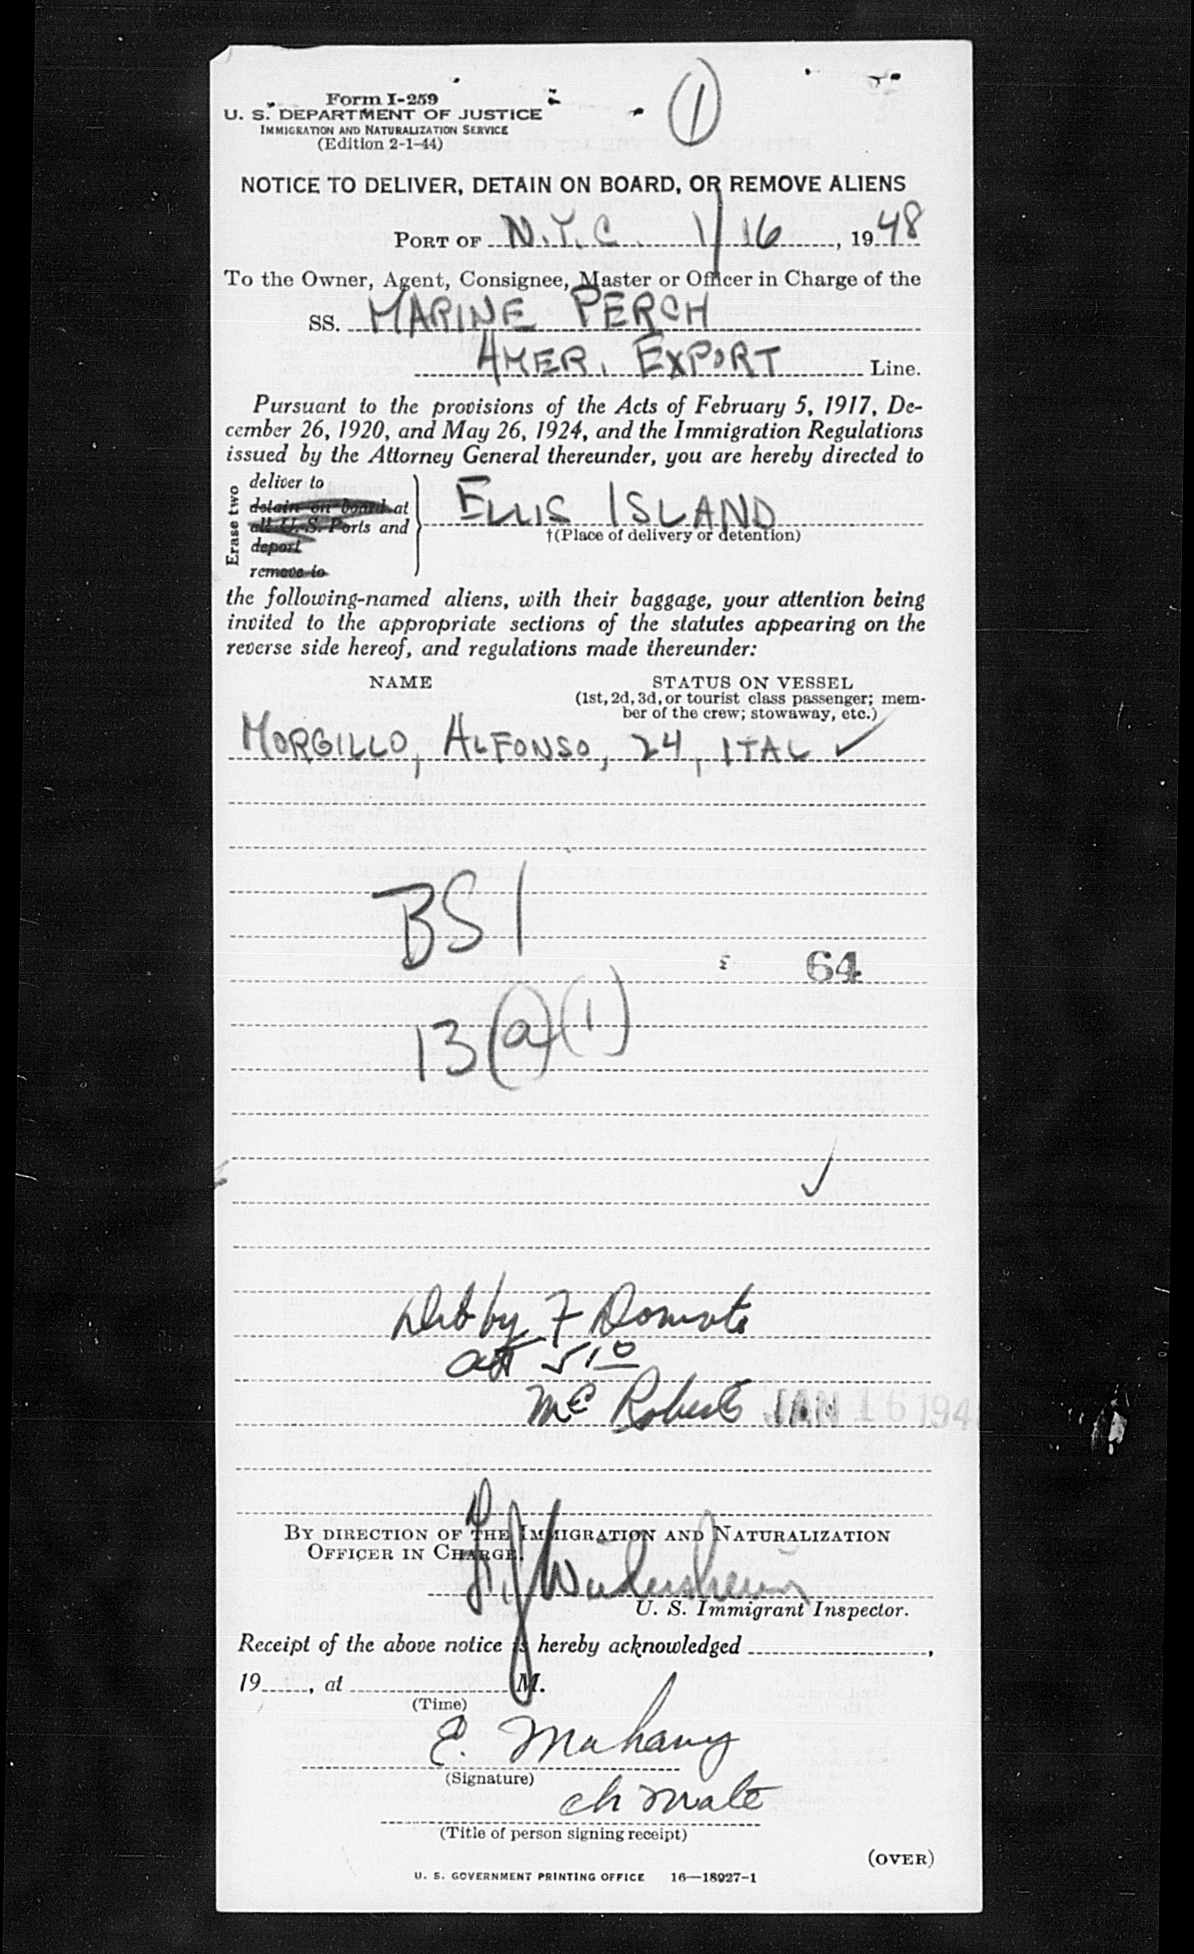 1
Form I-259
U. S. DEPARTMENT OF JUSTICE
IMMIGRATION AND NATURALIZATION SERVICE
(Edition 2-1-44)
NOTICE TO DELIVER, DETAIN ON BOARD, OR REMOVE ALIENS
PORT OF N.Y.C. 1/16, 1948
To the Owner, Agent, Consignee, Master or Officer in Charge of the
SS. MARINE PERCH
AMER. EXPORT Line.
Pursuant to the provisions of the Acts of February 5, 1917, De-
cember 26, 1920, and May 26, 1924, and the Immigration Regulations
issued by the Attorney General thereunder, you are hereby directed to
Erase two
deliver to
detain on board at
all U. S. Ports and
deport
remove to
ELLIS ISLAND
†(Place of delivery or detention)
the following-named aliens, with their baggage, your attention being
invited to the appropriate sections of the statutes appearing on the
reverse side hereof, and regulations made thereunder:
NAME STATUS ON VESSEL
(1st, 2d, 3d, or tourist class passenger; mem-
ber of the crew; stowaway, etc.)
MORGILLO, ALFONSO, 24, ITAL ✓
BSI
64
13(a)(1)
✓
by F Donato
at 5 10
McRoberts JAN 16 194
BY DIRECTION OF THE IMMIGRATION AND NATURALIZATION
OFFICER IN CHARGE.
U. S. Immigrant Inspector.
Receipt of the above notice is hereby acknowledged ,
19 , at M.
(Time)
E. Mahany
(Signature)
ch mate
(Title of person signing receipt)
(OVER)
U. S. GOVERNMENT PRINTING OFFICE 16—18927-1